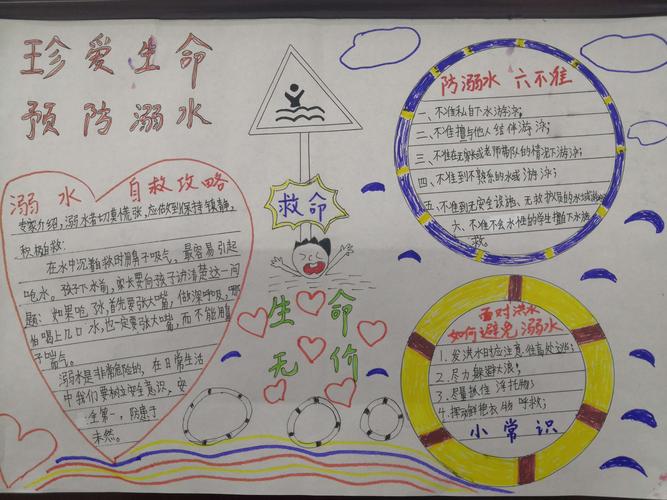 珍爱生命
预防溺水
溺水 自救攻略
专家介绍,溺水者切莫慌张,应做到保持镇静,
积极自救:
在水中沉着救时用鼻子吸气,最容易引起
呛水。孩子下水前,家长要向孩子讲清楚这一问
题:如果呛水,首先要张大嘴,做深呼吸,哪
怕喝上几口水,也一定要张大嘴,而不能用鼻
子喘气。
溺水是非常危险的,在日常生活
中我们要树立安全意识,安
全第一,防患于
未然。
救命
生命
无价
防溺水 六不准
一、不准私自下水游泳;
二、不准擅与他人结伴游泳;
三、不准在无家长或老师带队的情况下游泳;
四、不准到不熟悉的水域游泳;
五、不准到无安全设施、无救护员的水域游泳;
六、不准不会水性的学生擅下水施
救。
面对洪水
如何避免溺水
1.发洪水时应注意往高处逃;
2.尽力躲避大浪;
3.尽量抓住浮托物;
4.挥动鲜艳衣物呼救;
小常识